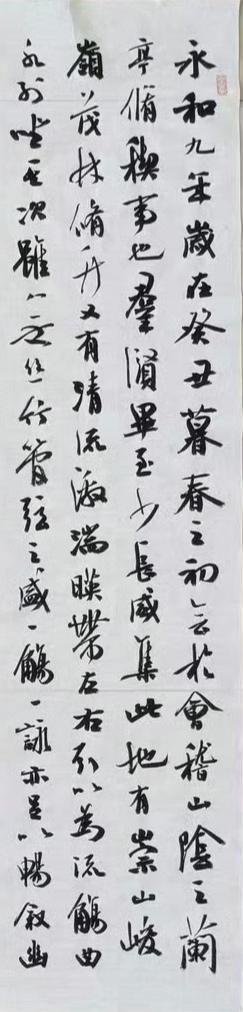 永和九年歲在癸丑暮春之初會於會稽山陰之蘭
亭脩稧事也羣賢畢至少長咸集此地有崇山峻
嶺茂林脩竹又有清流激湍暎帶左右引以為流觴曲
水列坐其次雖無絲竹管弦之盛一觴一詠亦足以暢敘幽